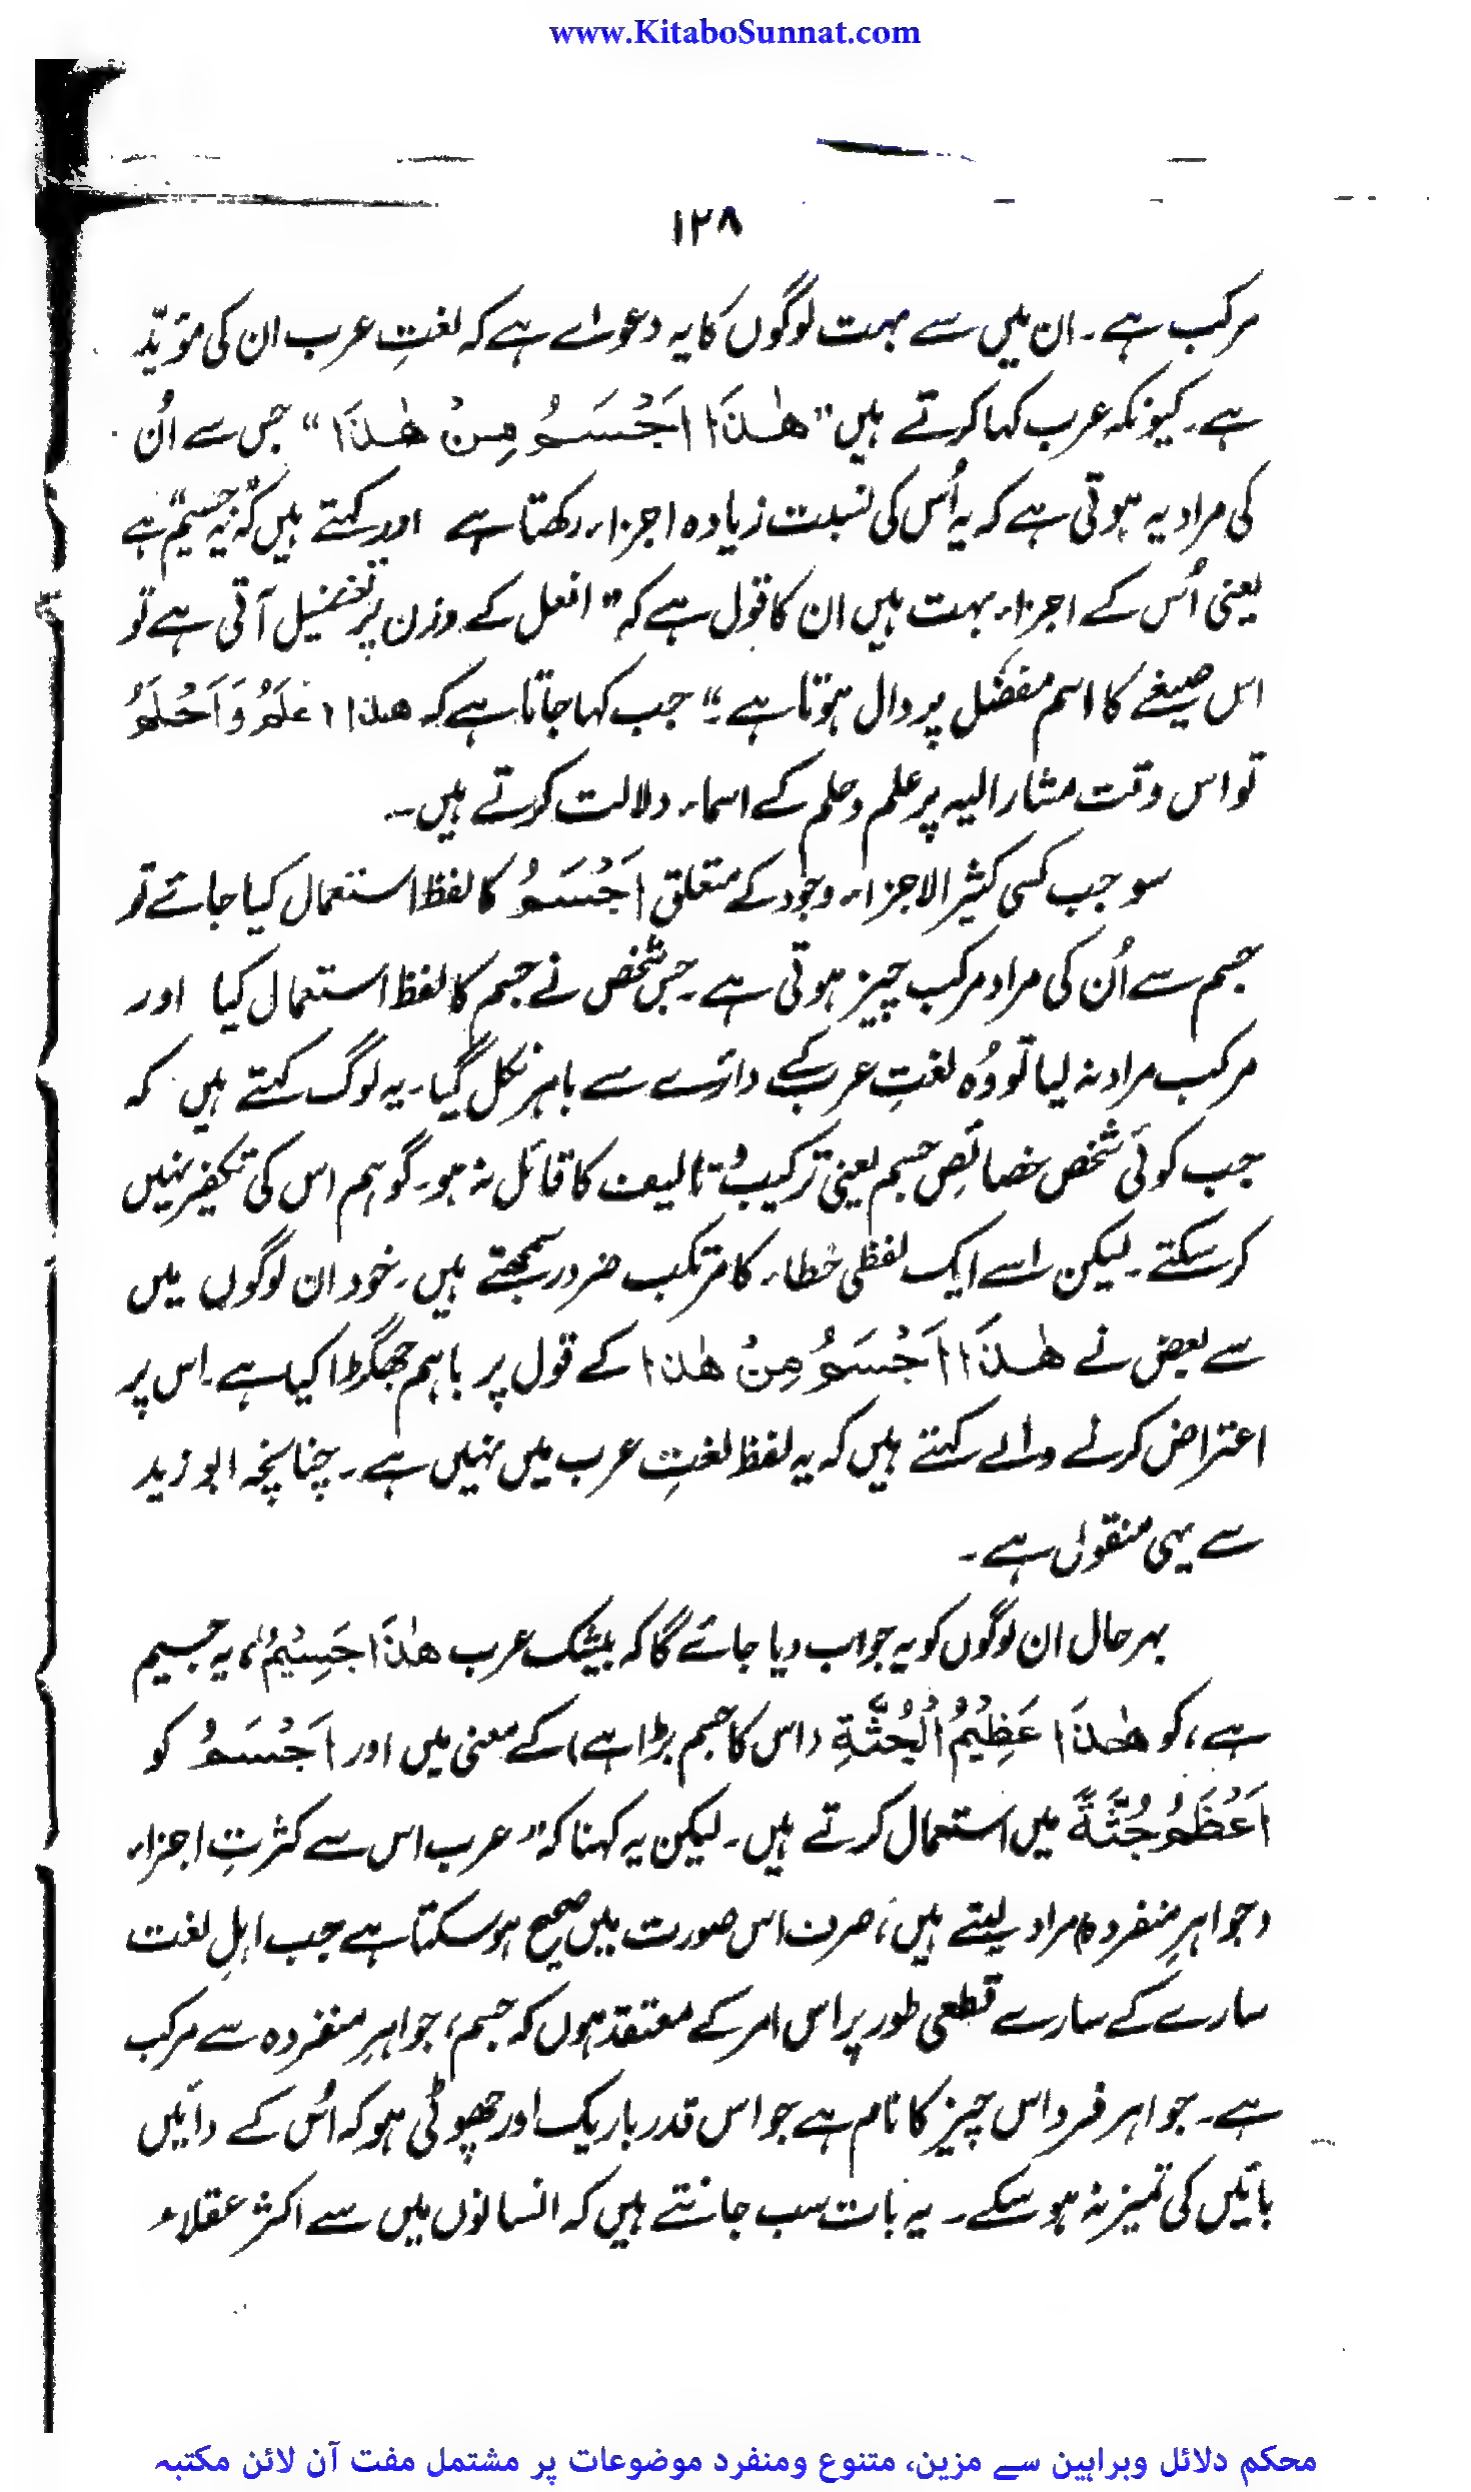 www.KitaboSunnat.com
۱۲۸
مرکب ہے۔ ان میں سے بہت لوگوں کا یہ دعواے ہے کہ لغتِ عرب ان کی مؤیّد
ہے۔ کیونکہ عرب کہا کرتے ہیں "هٰذَا اَجْسَمُ مِنْ هٰذَا" جس سے اُن
کی مراد یہ ہوتی ہے کہ یہ اُس کی نسبت زیادہ اجزاء رکھتا ہے اور کہتے ہیں کہ "یہ جسیم" ہے
یعنی اُس کے اجزاء بہت ہیں ان کا قول ہے کہ "افعل کے وزن پر تفضیل آتی ہے تو
اس صیغے کا اسم مفضل پر دال ہوتا ہے۔" جب کہا جاتا ہے کہ هذا اَعْلَمُ وَاَحْلَمُ
تو اس وقت مشار الیہ پر علم و حلم کے اسماء دلالت کرتے ہیں۔
سو جب کسی کثیر الاجزاء وجود کے متعلق اَجْسَمُ کا لفظ استعمال کیا جائے تو
جسم سے اُن کی مراد مرکب چیز ہوتی ہے۔ جس شخص نے جسم کا لفظ استعمال کیا اور
مرکب مراد نہ لیا تو وُہ لغتِ عرب کے دائرے سے باہر نکل گیا۔ یہ لوگ کہتے ہیں کہ
جب کوئی شخص خصائصِ جسم یعنی ترکیب و تالیف کا قائل نہ ہو۔ گو ہم اس کی تکفیر نہیں
کر سکتے۔ لیکن اسے ایک لفظی خطاء کا مرتکب ضرور سمجھتے ہیں۔ خود ان لوگوں میں
سے بعض نے هٰذَا اَجْسَمُ مِنْ هٰذا کے قول پر باہم جھگڑا کیا ہے۔ اس پر
اعتراض کرنے والے کہتے ہیں کہ یہ لفظ لغتِ عرب میں نہیں ہے۔ چنانچہ ابو زید
سے یہی منقول ہے۔
بہر حال ان لوگوں کو یہ جواب دیا جائے گا کہ بیشک عرب هٰذَا جَسِیْمٌ، یہ جسیم
ہے، کو هٰذَا عَظِیْمُ الْجُثَّةِ (اس کا جسم بڑا ہے) کے معنی میں اور اَجْسَمُ کو
اَعْظَمُ جُثَّةً میں استعمال کرتے ہیں۔ لیکن یہ کہنا کہ "عرب اس سے کثرتِ اجزاء
(جواہرِ منفردہ) مراد لیتے ہیں، صرف اس صورت میں صحیح ہو سکتا ہے جب اہلِ لغت
سارے کے سارے قطعی طور پر اس امر کے معتقد ہوں کہ جسم، جواہرِ منفردہ سے مرکب
ہے۔ جواہر فرد اس چیز کا نام ہے جو اس قدر باریک اور چھوٹی ہو کہ اُس کے دائیں
بائیں کی تمیز نہ ہو سکے۔ یہ بات سب جانتے ہیں کہ انسانوں میں سے اکثر عقلاء
محکم دلائل وبراہین سے مزین، متنوع ومنفرد موضوعات پر مشتمل مفت آن لائن مکتبہ